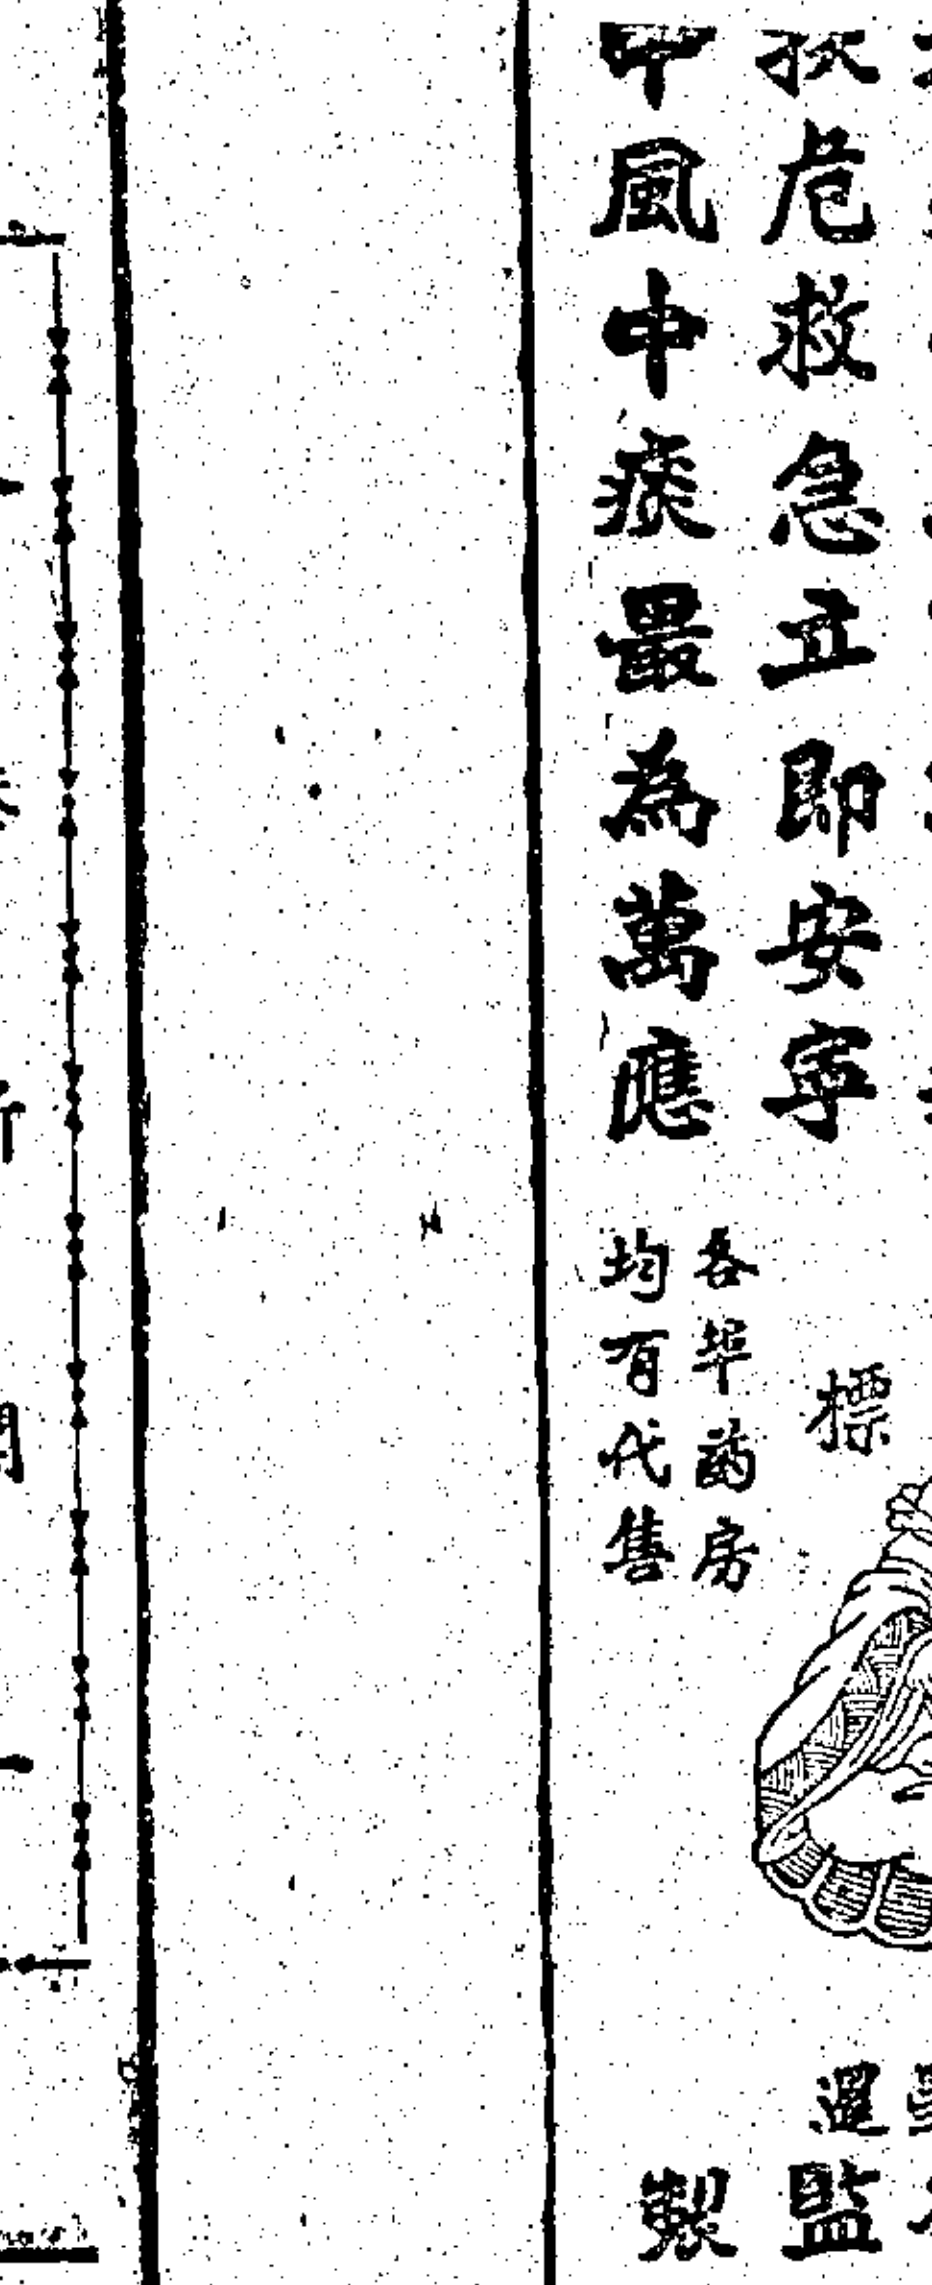 扶危救急立即安寧
中風中痰最為萬應
標
各埠葯房
均有代售
監
製